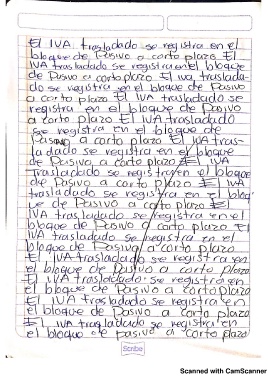 El IVA trasladado se registra en el
bloque de Pasivo a corto plazo El
IVA trasladado se registra en el bloque
de Pasivo a corto plazo El iva traslada-
do se registra en el bloque de Pasivo
a corto plazo El IVA trasladado se
registra en el bloque de Pasivo a
corto plazo El IVA trasladado
se registra en el bloque de
Pasivo a corto plazo El IVA tras-
ladado se registra en el bloque
de Pasivo a corto plazo El IVA
trasladado se registra en el bloque
de Pasivo a corto plazo El IVA
trasladado se registra en el bloq
ue de Pasivo a corto plazo El
IVA trasladado se registra en el
bloque de Pasivo a corto plazo El
IVA trasladado se registra en el
bloque de Pasivo a corto plazo
El IVA trasladado se registra en
el bloque de Pasivo a corto plazo
El IVA trasladado se registra en
el bloque de Pasivo a corto plazo
El IVA trasladado se registra en
el bloque de Pasivo a corto plazo
Scribe
Scanned with CamScanner